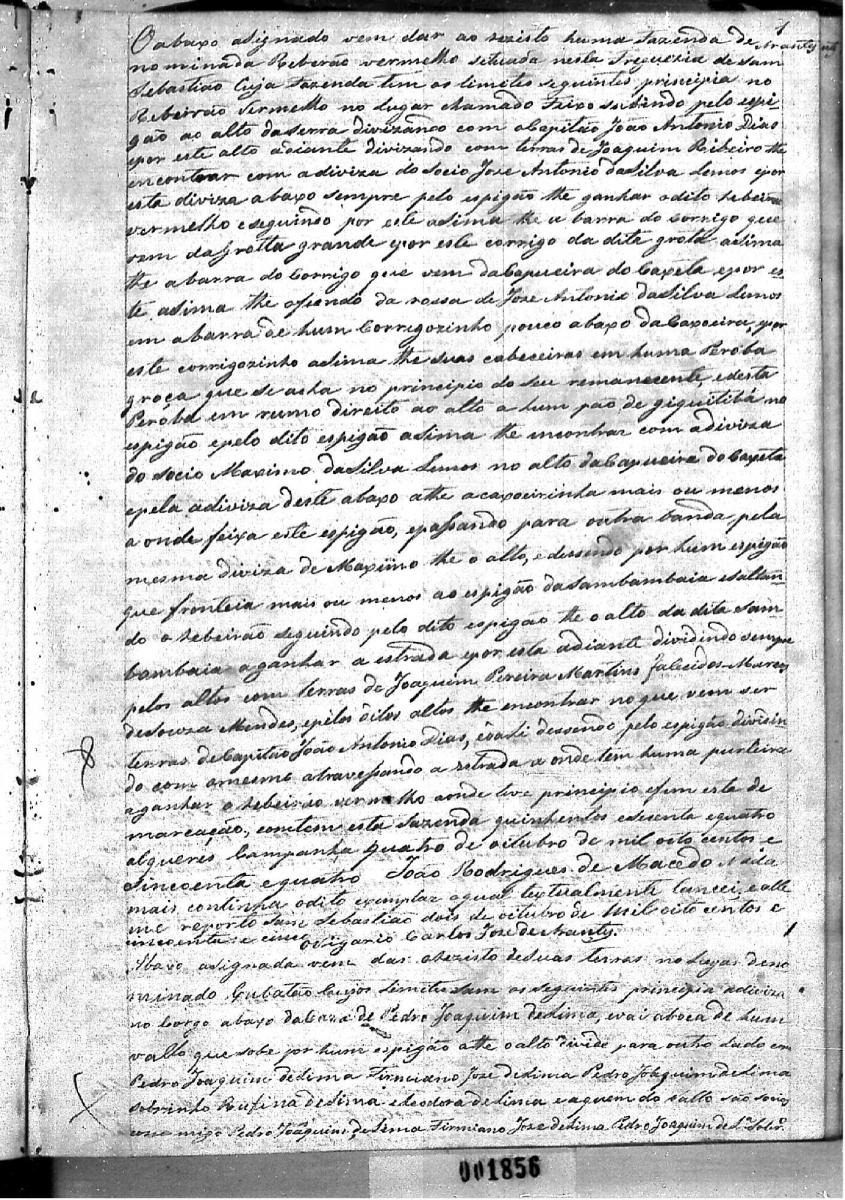 1
O abaxo asignado vem dar ao rezisto huma Fazenda de
Arantes
nominada Reberão vermelho situada nesta Freguezia de Sam
Sebastiao Cuja Fazenda tem os limites seguintes principia no
Ribeirão vermelho no lugar chamado Feixo subindo pelo espi
gão ao alto da serra divizando com o Capitão João Antonio Dias
epor este alto adiante divizando com terras de Joaquim Ribeiro the
encontrar com a diviza do Socio Joze Antonio da Silva Lemos epor
esta diviza abaxo sempre pelo espigão the ganhar o dito rebeirão
vermelho e seguindo por este asima the a barra do Corrigo que
vem da Grotta grande epor este corrigo da dita grota asima
the a barra do Corrigo que vem da Capueira do Capeta epor es
te asima the ofundo da rossa de Joze Antonio da Silva Lemos
em a barra de hum Corrigozinho pouco abaxo da Caxoeira, epor
este corrigozinho asima the suas cabeceiras em huma Peroba
groça que se acha no principio do seu remanecente, edesta
Peroba em rumo direito ao alto a hum pao de giquitibá no
espigão epelo dito espigão asima the encontrar com adiviza
do socio Maximo da Silva Lemos no alto da Capueira do Capeta
epela adiviza deste abaxo athe a caxoeirinha mais ou menos
a onde feixa este espigão, epassando para outra banda pela
mesma diviza de Maximo the o alto, e dessendo por hum espigão
que fronteia mais ou menos ao espigão da Sambambaia esaltan
do o rebeirão seguindo pelo dito espigão the o alto da dita Sam
bambaia a ganhar a estrada epor esta adiante dividindo sempre
pelos altos com terras de Joaquim Pereira Martins falecidos Marcos
de Souza Mendes, epelos ditos altos the encontrar no que vem ser
terras de Capitão João Antonio Dias, e dahi dessendo pelo espigão dividin
do com omesmo atravessando a estrada a onde tem huma purteira
a ganhar o rebeirão vermelho aonde teve principio efim esta de
marcação, contem esta Fazenda quinhentos esesenta equatro
alqueres Campanha quatro de oitubro de mil oito centos e
sincoenta equatro João Rodrigues de Macedo Nada
mais continha odito exemplar aqual textualmente lancei, e a elle
me reporto Sam Sebastião dois de oitubro de Mil oito centos e
cincoenta e cinco O Vigario Carlos Joze de Arantes.
Abaxo asignada vem das orezisto desuas terras no lugar deno
minado Cubatão Cujos limites sam os seguintes principia adiviza
no Corgo abaxo da Caza de Pedro Joaquim deLima, vai aboca de hum
vallo que sobe por hum espigão athe oalto divide para outro lado com
Pedro Joaquim deLima Firmiano Joze deLima Pedro Joaquim deLima
sobrinho Rufina deLima e deodora deLima eaquem do vallo são socios
com migo Pedro Joaquim de Lima Firmiano Joze deLima Pedro Joaquim de L.ª Sobr.º
001856